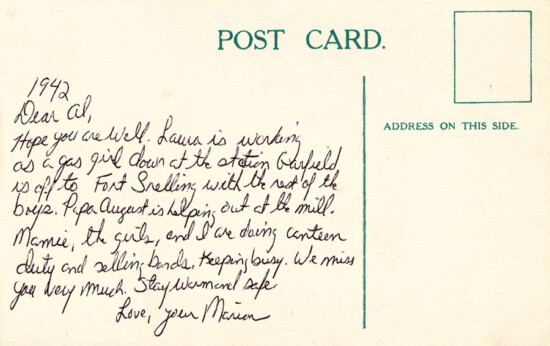 POST CARD.
ADDRESS ON THIS SIDE.
1942
Dear Al,
Hope you are well. Laura is working
as a gas girl down at the station Garfield
is off to Fort Snelling with the rest of the
boys. Papa August is helping out at the mill.
Mamie, the girls, and I are doing canteen
duty and selling bonds. Keeping busy. We miss
you very much. Stay warm and safe
Love, your Marion